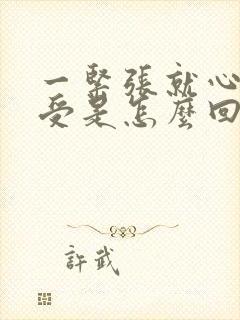 一緊張就心
受是怎麼回
許武